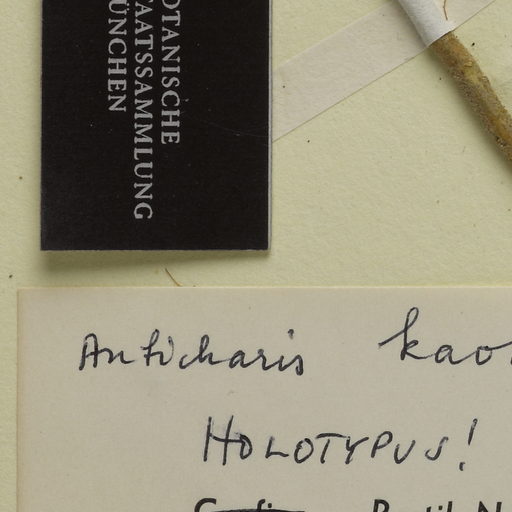 OTANISCHE
TAATSSAMMLUNG
ÜNCHEN
Anticharis kao
HOLOTYPUS!